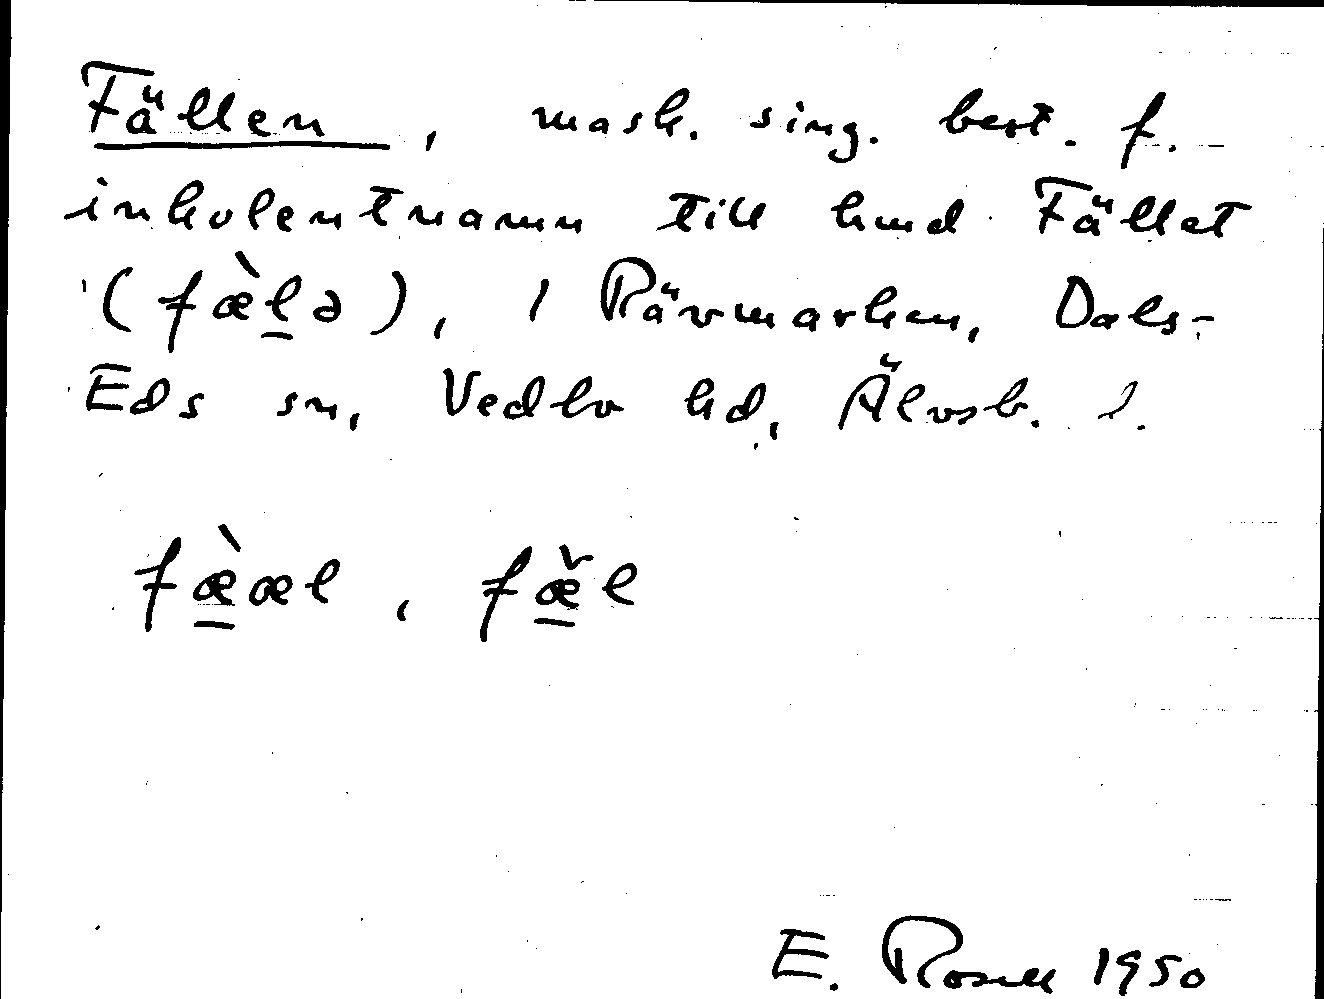 Fällen, mask. sing. best. f.
inkolentnamn till hmd Fället
(fæ̀l̠ə), 1 Rävmarken, Dals-
Eds sn, Vedbo hd, Älvsb. l.
fæ̠̀æl, fæ̠̌l
E. Rosell 1950